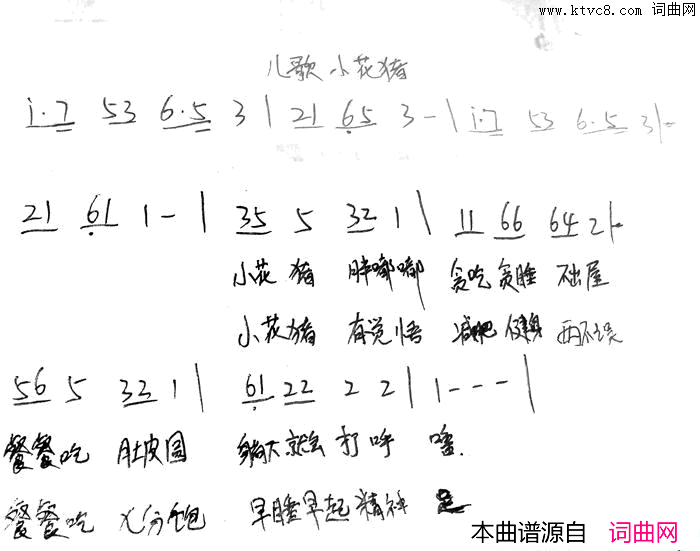 www.ktvc8.com 词曲网
儿歌 小花猪
i·7 53 6·5 3 | 21 65 3 - | i·7 53 6·5 3 |
21 61 1 - | 35 5 32 1 | 11 66 64 2 |
小花 猪 胖嘟嘟 贪吃 贪睡 不出屋
小花猪 有觉悟 减肥 健身 两不误
56 5 33 1 | 61 22 2 2 | 1 - - - |
餐餐吃 肚皮圆 躺下就会 打呼 噜.
餐餐吃 八分饱 早睡早起 精神 足
本曲谱源自 词曲网